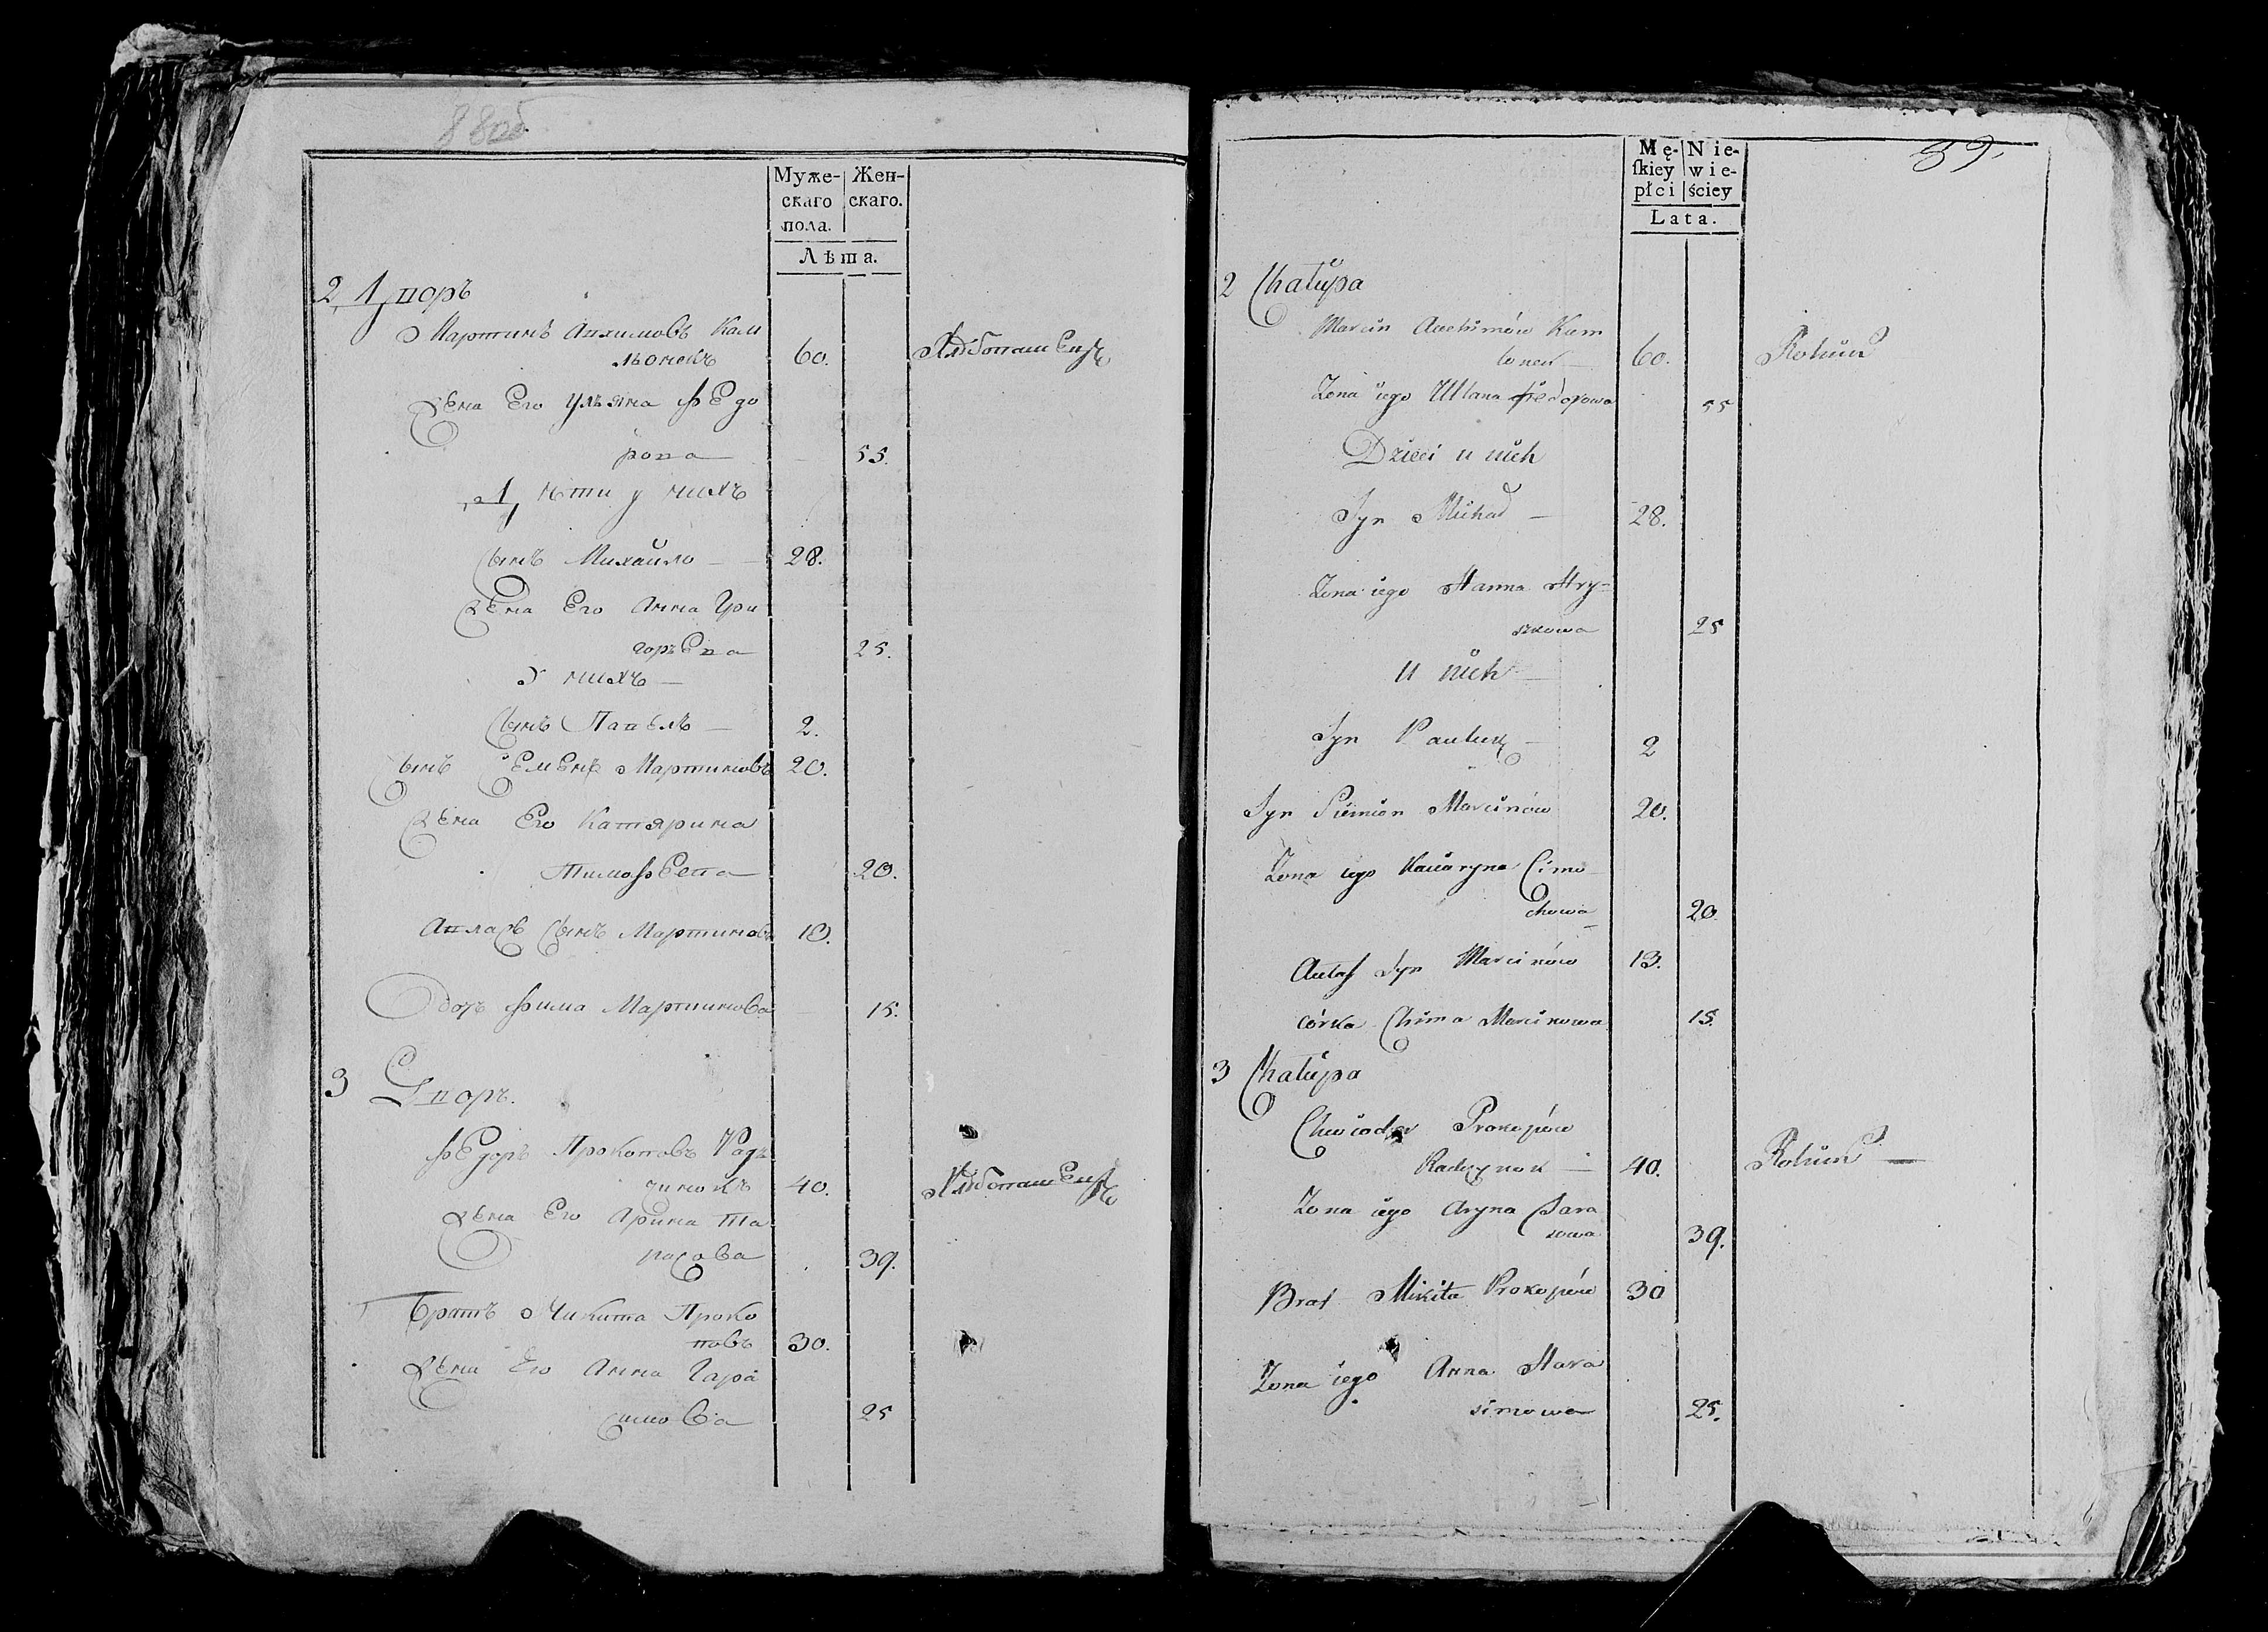 88об
Муже-
скаго
пола.
Жен-
скаго.
Лѣта.
2 Дворъ
Мартинъ Авхимовъ Кам
лѣонекъ 60. Хлѣбопашецъ
Жена Его Ульяна Федо
рова 55.
Дѣти у нихъ
Сынъ Михайло 28.
Жена Его Анна Гри
горьева 25.
У нихъ
Сынъ Павелъ 2.
Сынъ Семенъ Мартиновъ 20.
Жена Его Катярина
Тимофеева 20.
Авласъ Сынъ Мартиновъ 13.
Дочь Фима Мартинова 15.
3 Дворъ.
Федоръ Прокоповъ Рад
чинокъ 40. Хлѣбопашецъ
Жена Его Арина Та
расова 39.
Братъ Микита Проко
повъ 30.
Жена Его Анна Гара
симова 25
39.
Mę-
skiey
płci
Nie-
wie-
ściey
Lata.
2 Chałupa
Marcin Auchimów Kam
lonek 60. Rolnik
Zona iego Ullana Fiedorowa 55
Dzieci u nich
Syn Michał 28.
Zona iego Hanna Hry-
szkowa 25
U nich
Syn Pauluk 2
Syn Siemion Marcinów 20.
Zona iego Kaciaryna Cimo
chowa 20
Aułas Syn Marcinów 13.
córka Chima Marcinowa 15.
3 Chałupa
Chwiodor Prokopów
Radczynok 40. Rolnik
Zona iego Aryna Tara
sowa 39.
Brat Mikita Prokopów 30
Zona iego Anna Hara
simowa 25.